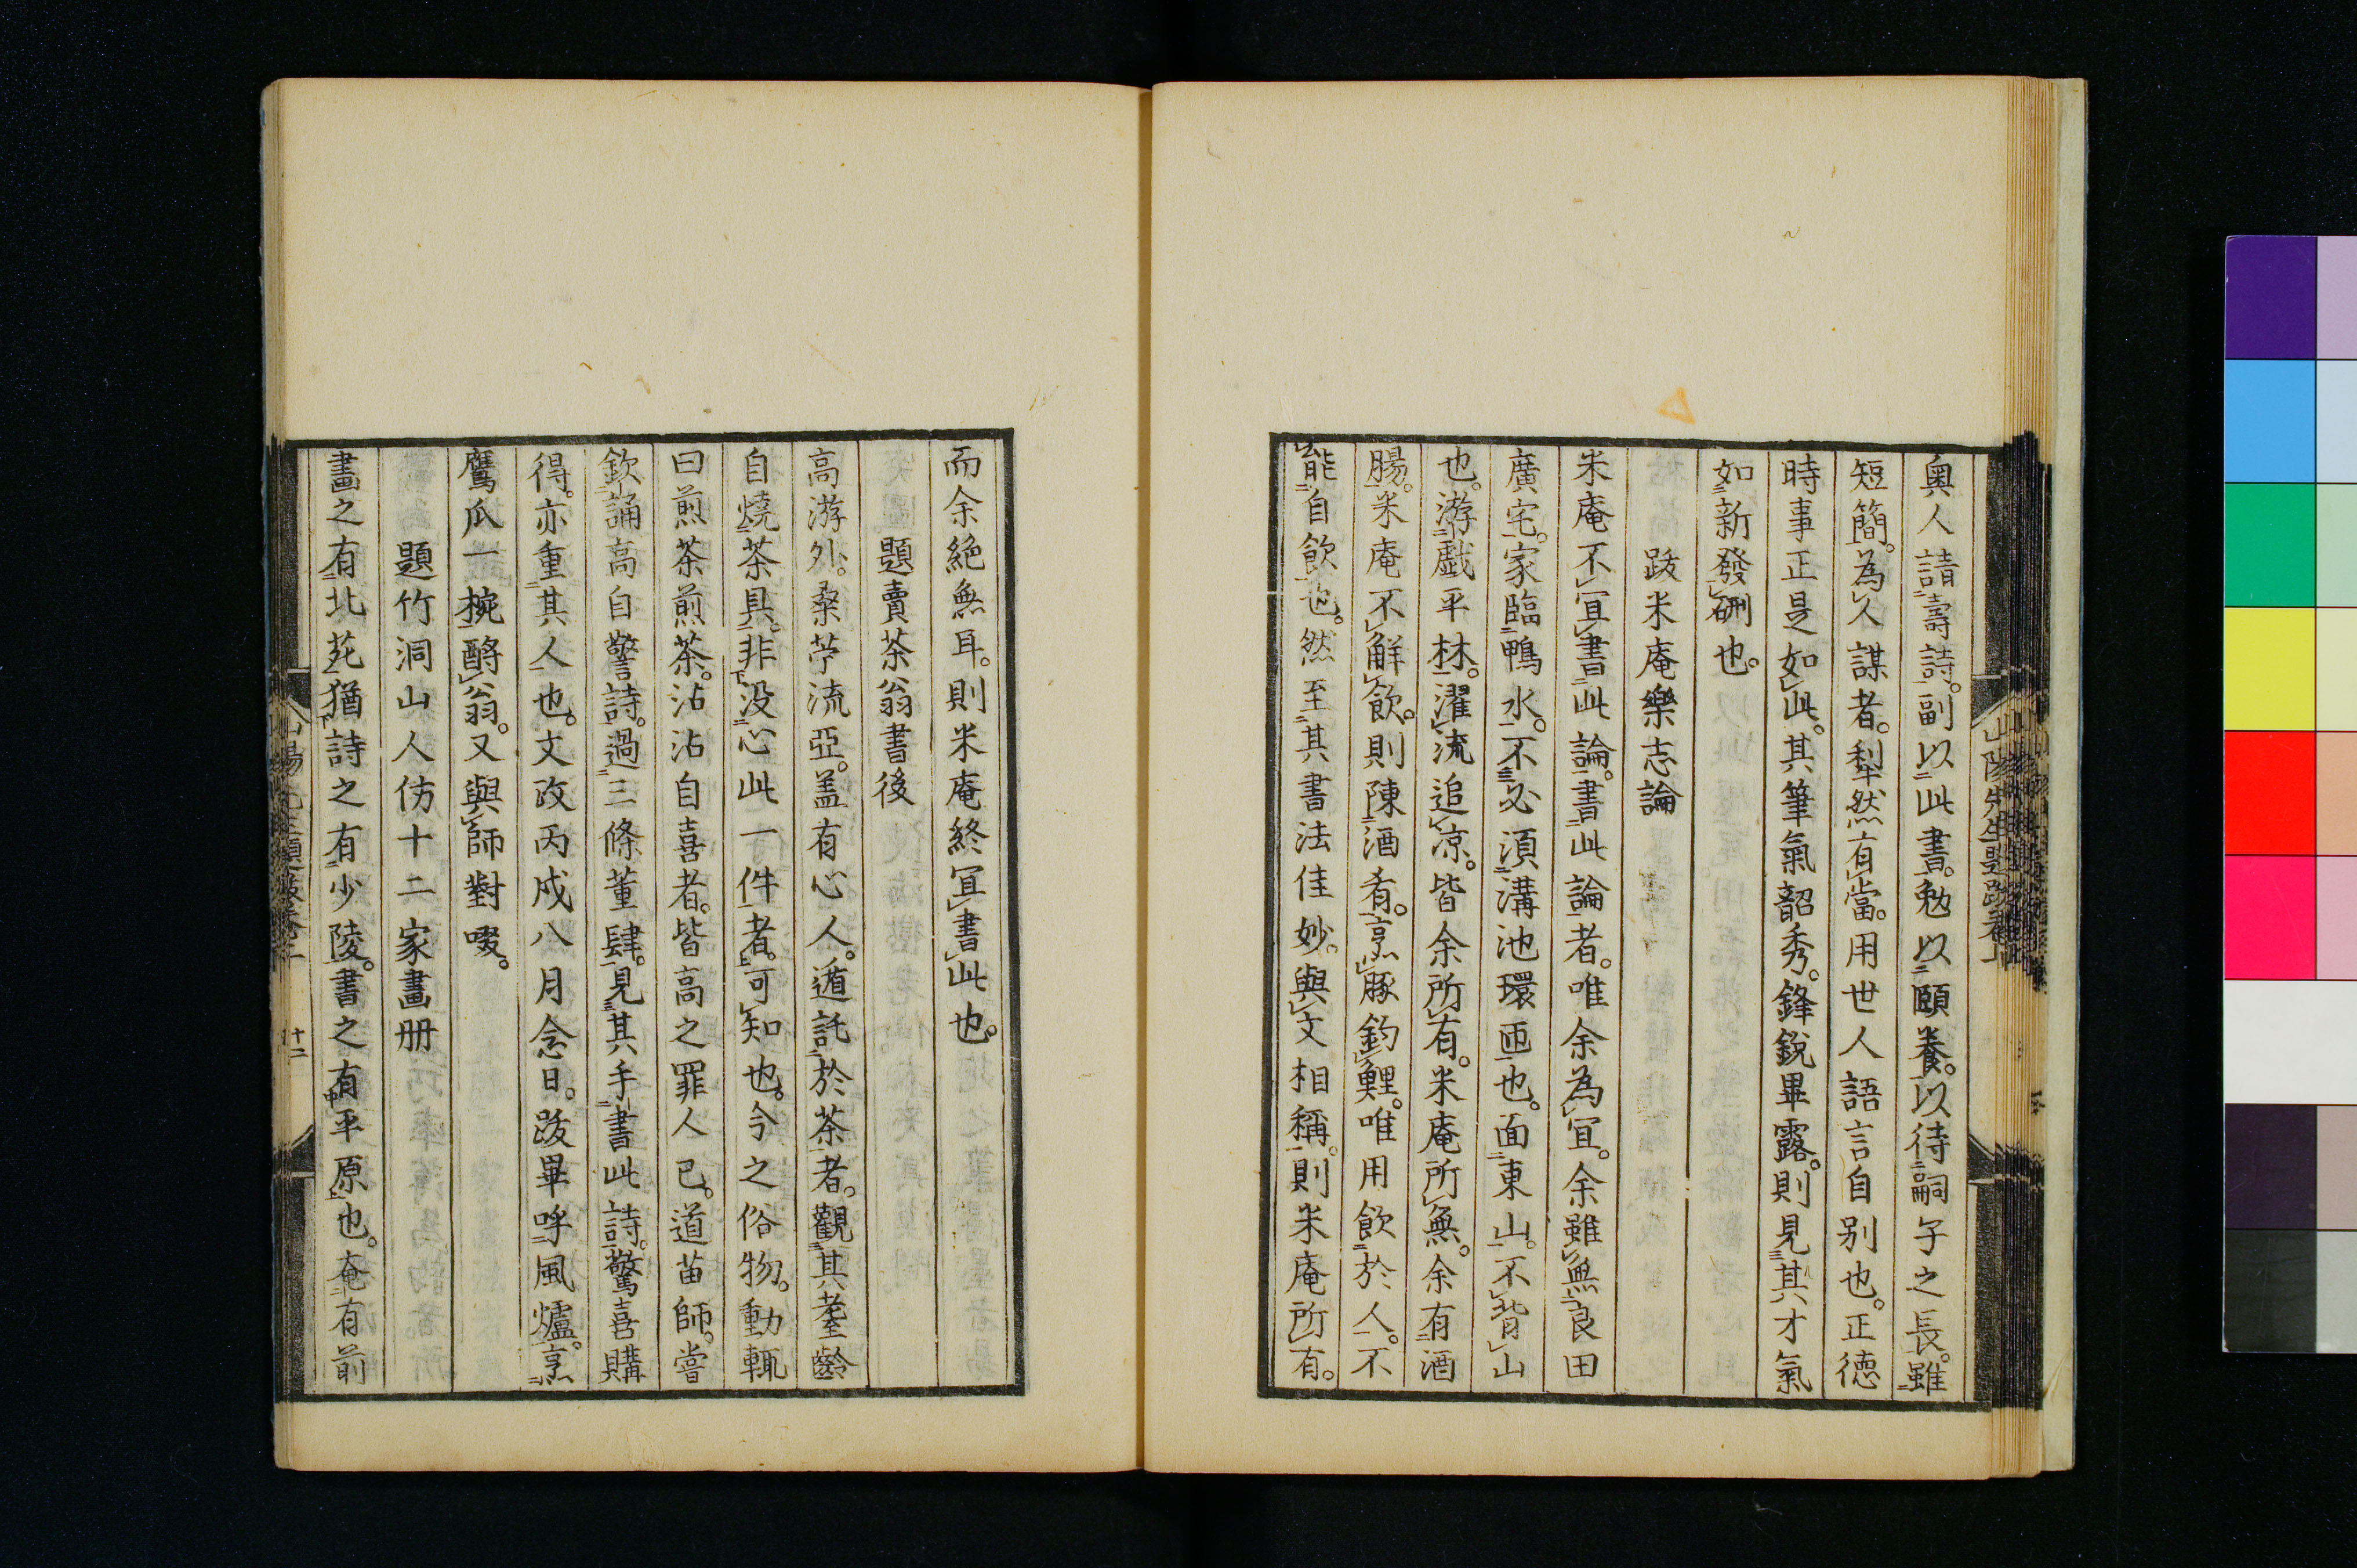 奧人請壽詩。副以此書。勉以頤養。以待嗣子之長。雖
短簡。為人謀者。犁然有當。用世人語言自別也。正德
時事正是如此。其筆氣韶秀。鋒銳畢露。則見其才氣
如新發硎也。
跋米庵樂志論
米庵不宜書此論。書此論者。唯余為宜。余雖無良田
廣宅。家臨鴨水。不必須溝池環匝也。面東山。不背山
也。游戯平林。濯流追凉。皆余所有。米庵所無。余有酒
腸。米庵不解飲。則陳酒肴。烹豚釣鯉。唯用飲於人。不
能自飲也。然至其書法佳妙。與文相稱。則米庵所有。
而余絕無耳。則米庵終宜書此也。
題賣茶翁書後
高游外。桑苧流亞。盖有心人。遁託於茶者。觀其耋齡
自燒茶具。非没心此一件者。可知也。今之俗物。動輒
曰煎茶煎茶。沾沾自喜者。皆高之罪人已。道苗師。嘗
欽誦高自警詩。過三條董肆。見其手書此詩。驚喜購
得。亦重其人也。文政丙戍八月念日。跋畢呼風爐。烹
鷹爪一椀酹翁。又與師對啜。
題竹洞山人仿十二家畫册
畫之有北苑猶詩之有少陵。書之有平原也。奄有前
十二